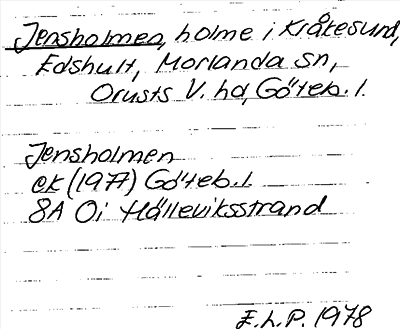 Jensholmen, holme i Kråkesund,
Edshult, Morlanda sn,
Orusts V. hd, Göteb. l.
Jensholmen
ek (1977) Göteb. l.
8A Oi Hälleviksstrand
E.L.P. 1978